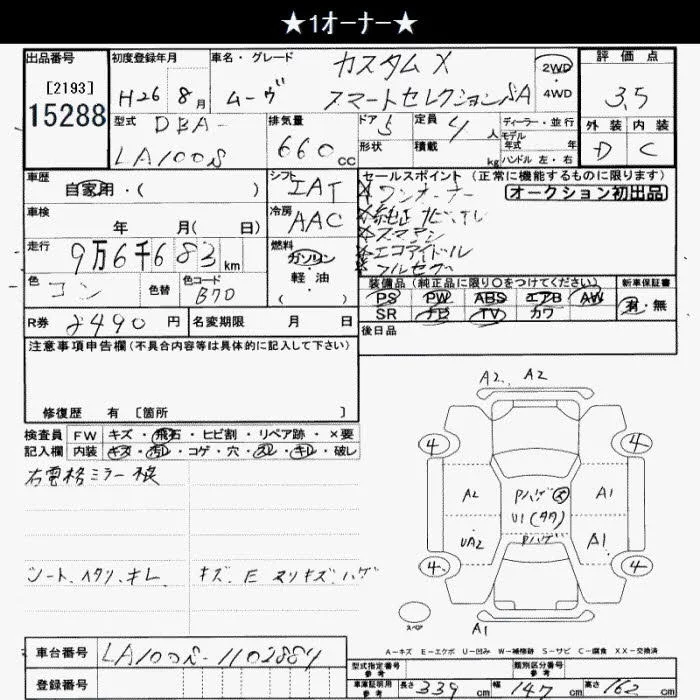 ★1ｵｰﾅｰ★
出品番号 初度登録年月 車名・グレード カスタムX 2WD 評価点
[2193] H26年 8月 ムーヴ スマートセレクションSA ・4WD 3.5
15288 型式 DBA- 排気量 ドア 5 定員 4人 ディーラー・並行 外装 内装
LA100S 660cc 形状 積載 kg モデル年式 年 D C
ハンドル 左・右
車歴 シフト セールスポイント (正常に機能するものに限ります)
自家用・( ) IAT ワンオーナー オークション初出品
車検 冷房 純正ナビ・TEL
年 月(日) AAC スマアシ
走行 9万6千683km 燃料 エコアイドル
ガソリン フルセグ
色 コン 色替 色コード B70 軽・油 装備品 (純正品に限り○をつけてください) 新車保証書
( ) PS PW ABS エアB AW 有・無
R券 8490円 名変期限 月 日 SR ナビ TV カワ
後日品
注意事項申告欄(不具合内容等は具体的に記入して下さい)
修復歴 有 [箇所 ]
A2. A2
検査員 FW キズ・飛石・ヒビ割・リペア跡・×要
記入欄 内装 キズ・汚れ・コゲ・穴・スレ・キレ・破し
4 4
右電格ミラー損
A2 Pハゲ A1
U1(タタ)
UA2 Pハゲ A1
4 4
シート、ヘタリ、キレ キズ、E ヌリキズ、ハゲ
スペア
A1
A-キズ E-エクボ U-凹み W-補修跡 S-サビ C-腐食 XX-交換済
車台番号 LA100S-1102884
型式指定番号 参考 類別区分番号 参考
登録番号 車庫証明用 参考 長さ 339cm 幅 147cm 高さ 162cm